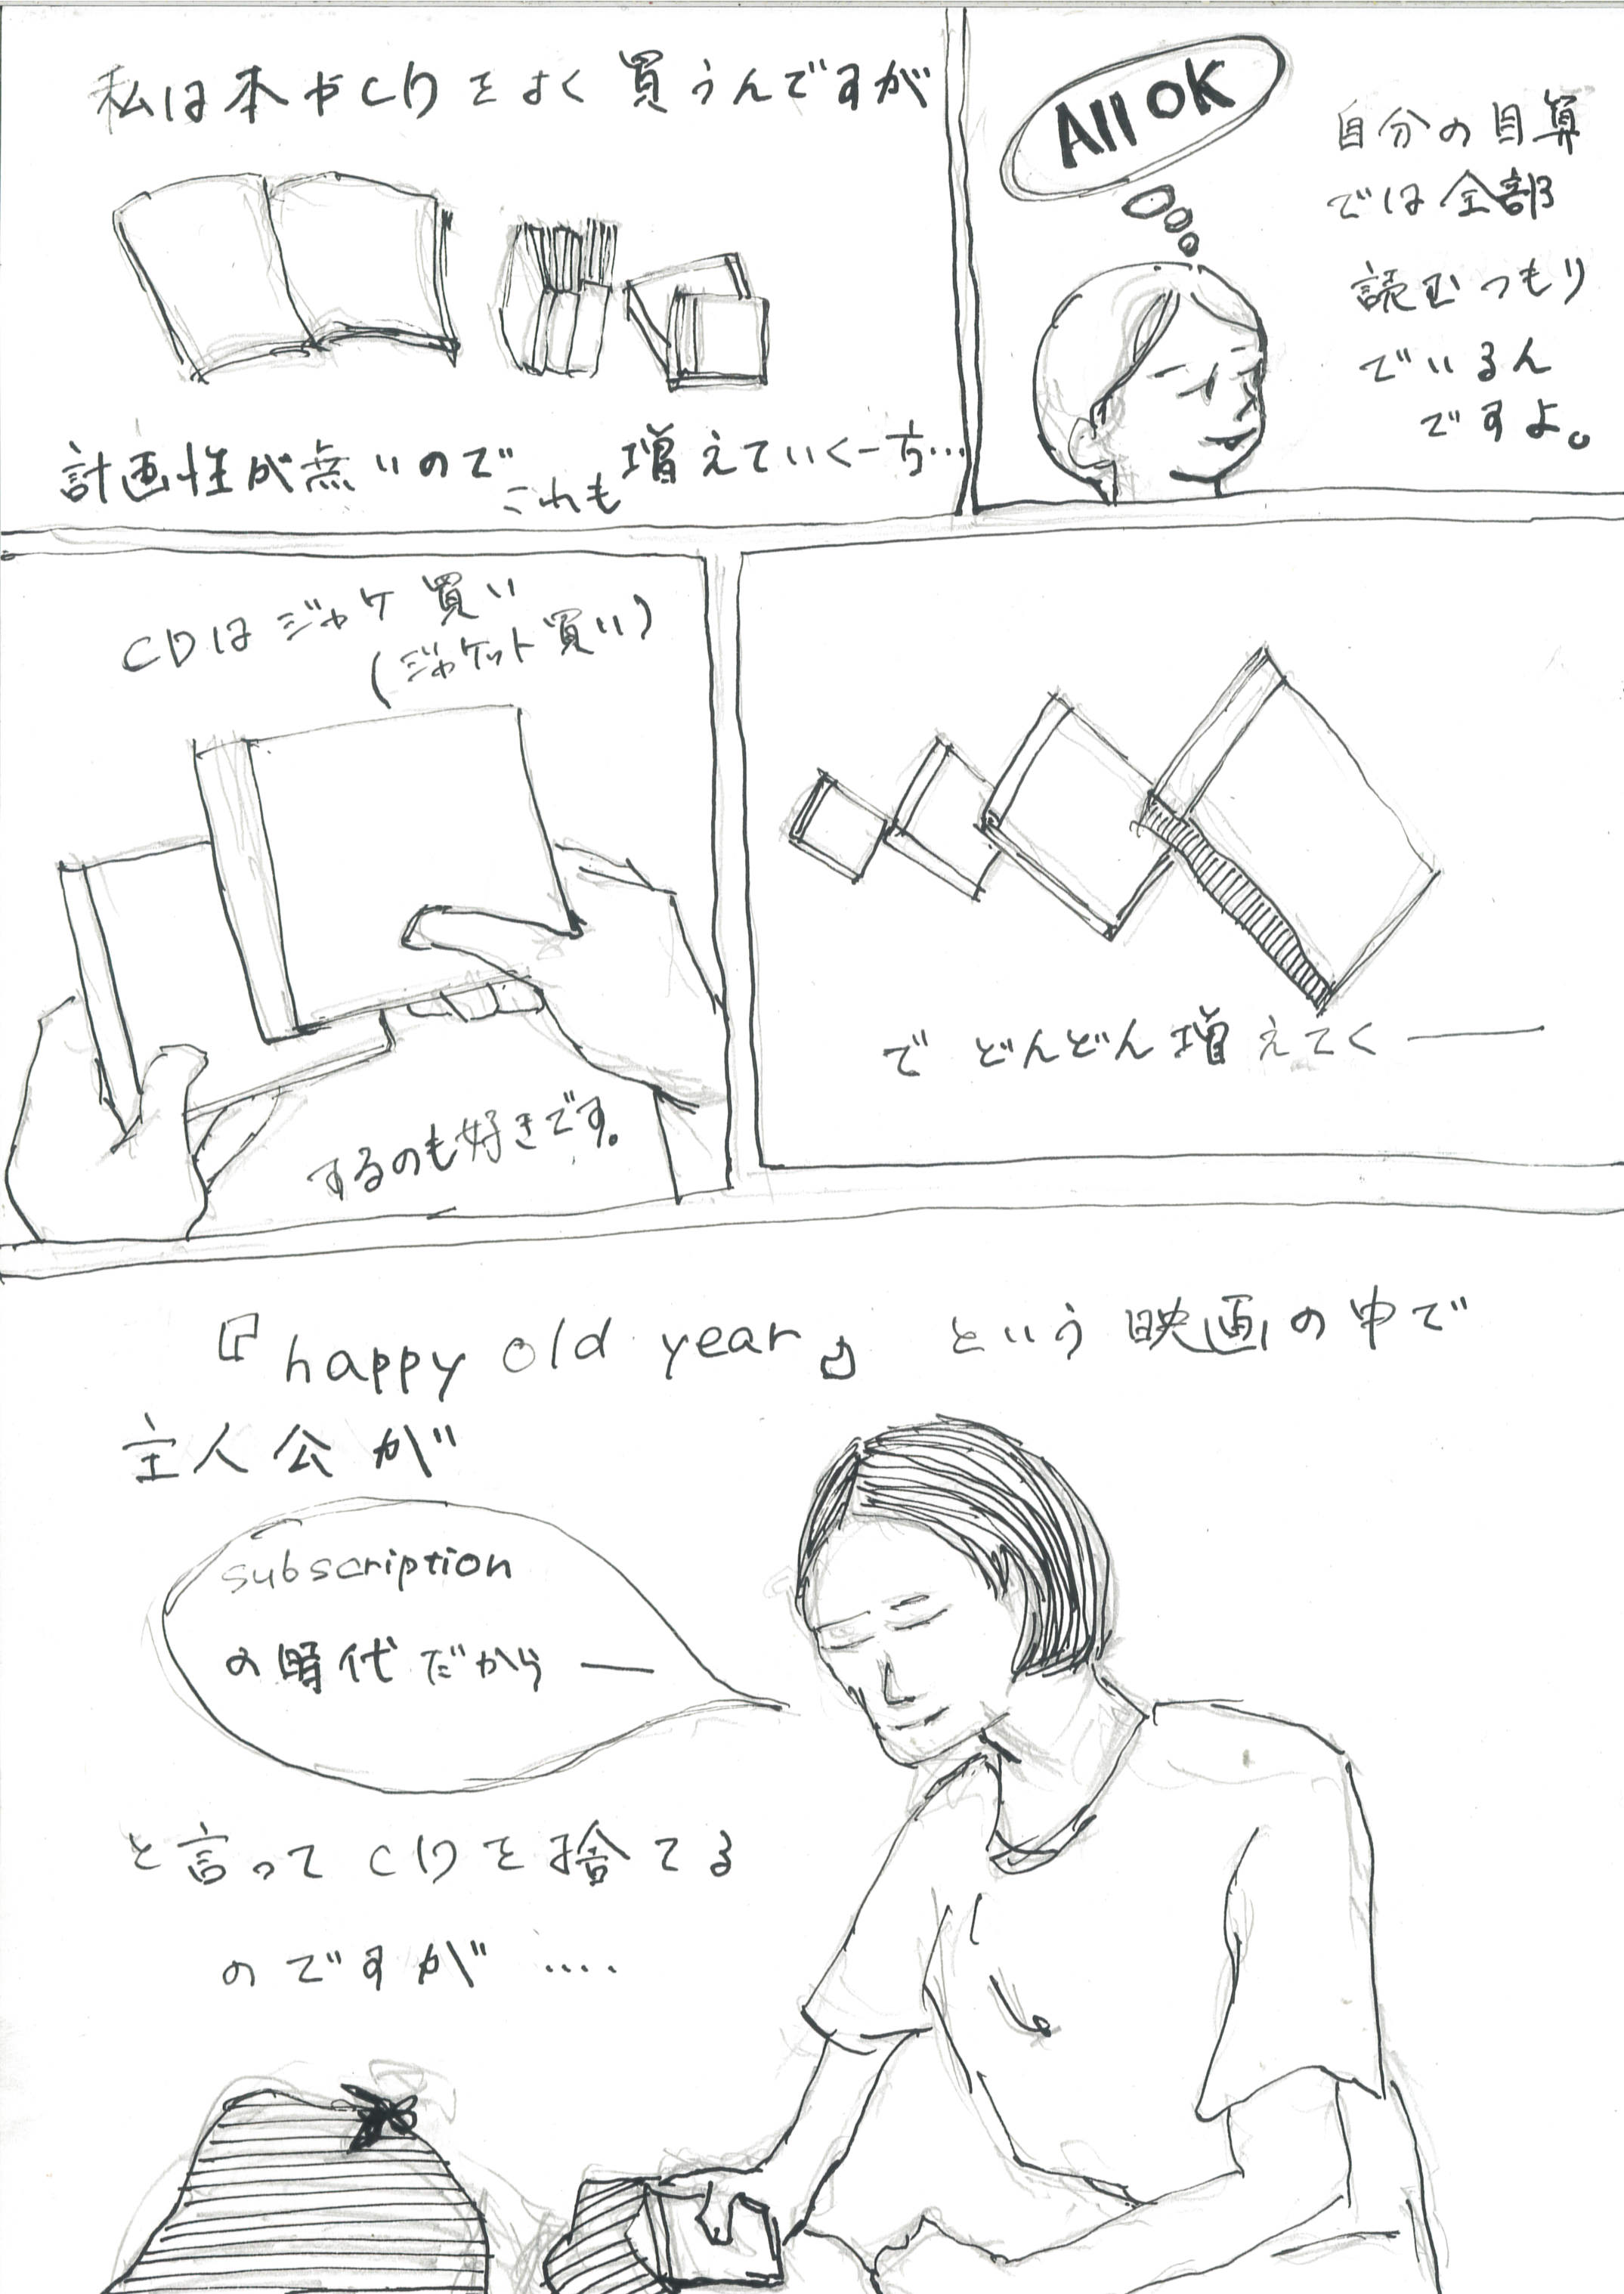 私は本やCDをよく買うんですが
計画性が無いので これも 増えていく一方…
All OK
自分の目算
では全部
読むつもり
でいるん
ですよ。
CDはジャケ買い
(ジャケット買い)
するのも好きです。
で どんどん増えてく―
『happy old year』という映画の中で
主人公が
subscription
の時代だから―
と言ってCDを捨てる
のですが‥‥